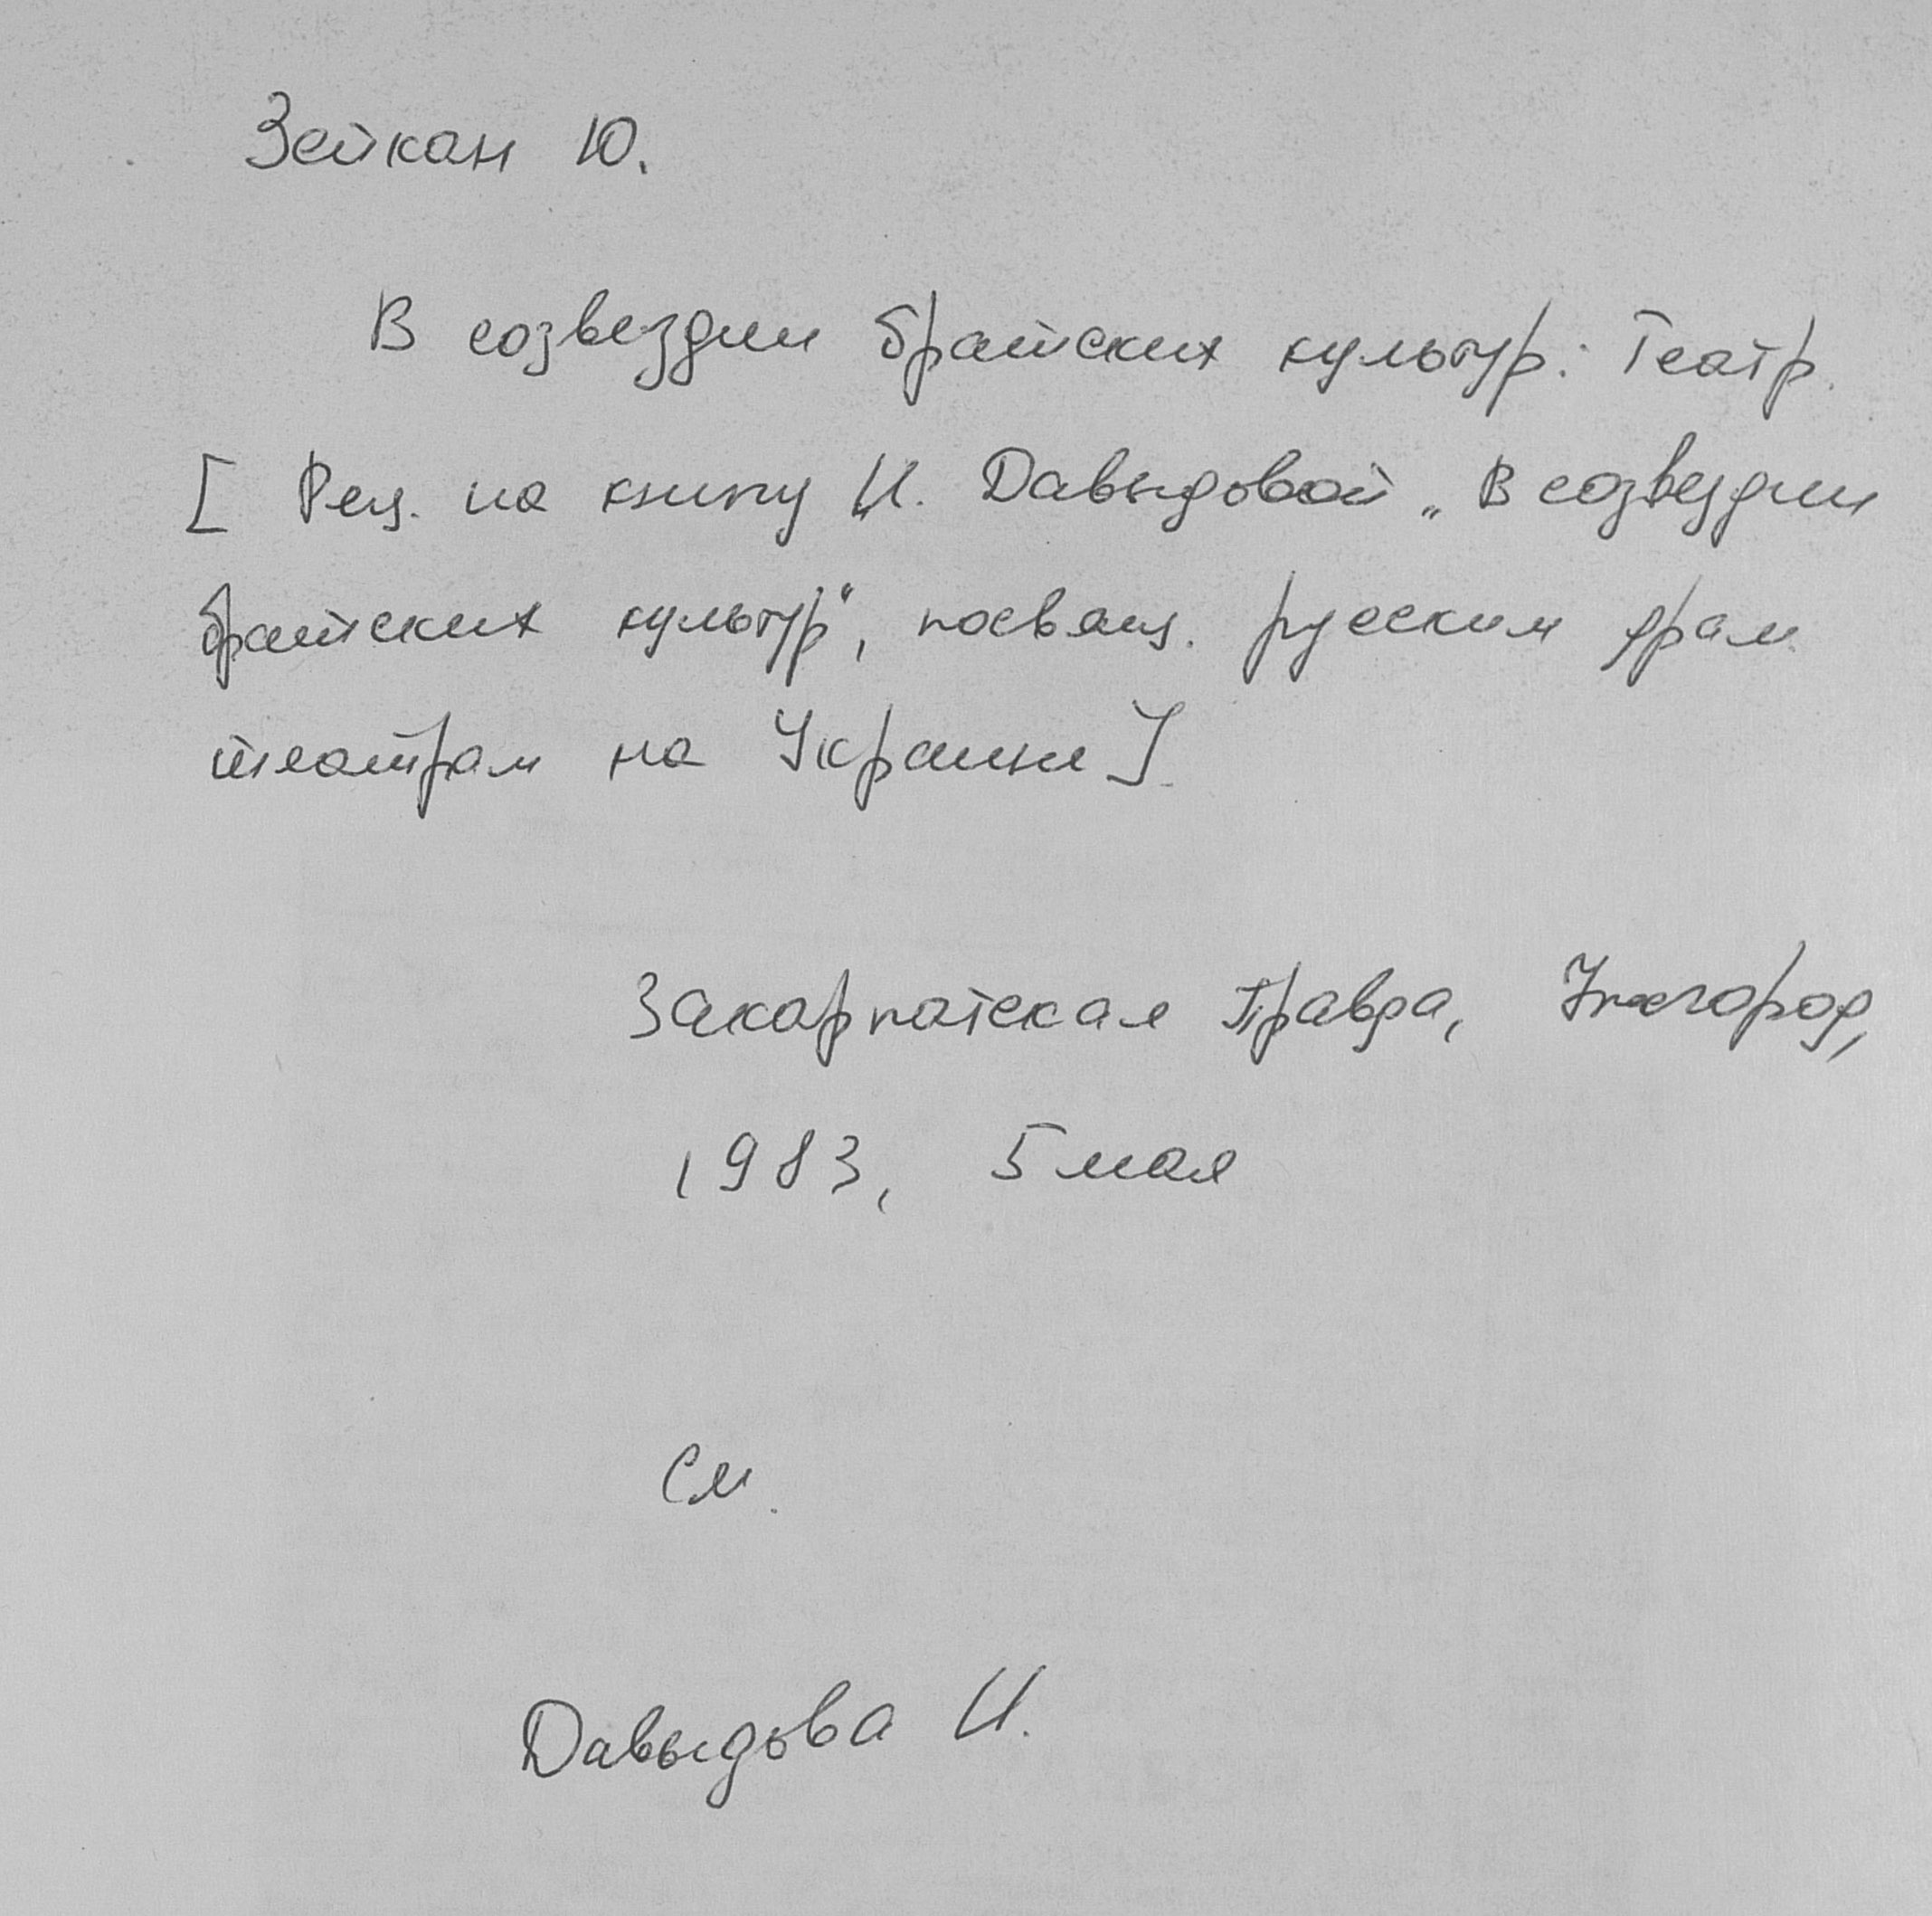 Зейкан Ю.
В созвездии братских культур: Театр.
[ Рец. на книгу И. Давыдовой „В созвездии
братских культур", посвящ. русским драм.
театрам на Украине ].
Закарпатская правда, Ужгород,
1983, 5 мая
См.
Давыдова И.